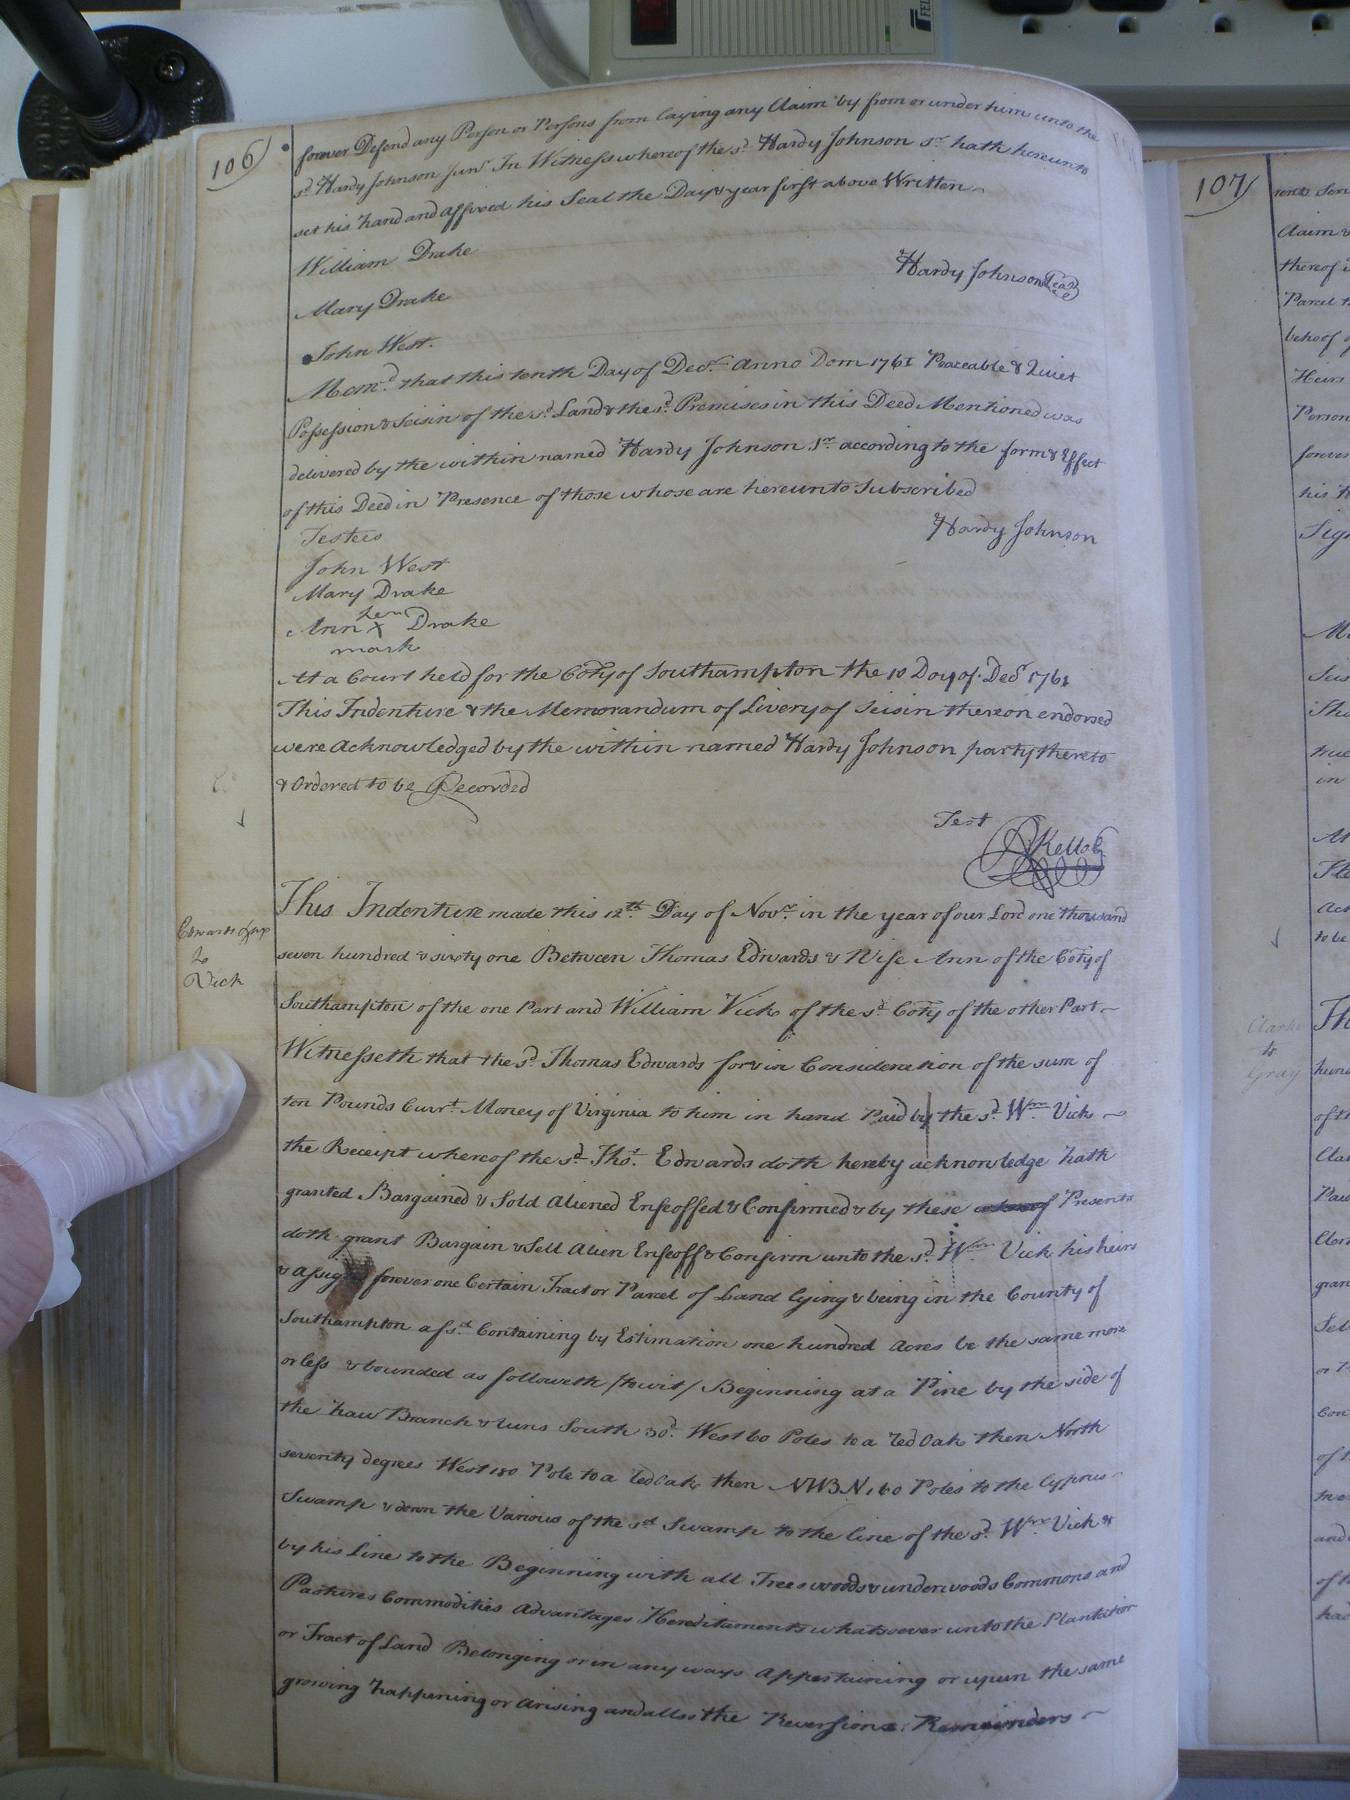 106
forever Defend any Person or Persons from laying any Claim by from or under him unto the
sd. Hardy Johnson junr In Witness whereof the sd. Hardy Johnson sr. hath hereunto
set his hand and affixed his Seal the Day & year first above Written
William Drake
Hardy Johnson Seal
Mary Drake
John West.
Memd. that this tenth Day of Decr. Anno Dom 1761 Peaceable & Quiet
Possession & Seisin of the sd. Land & the sd. Premises in this Deed Mentioned was
delivered by the within named Hardy Johnson Sr. according to the form & Effect
of this Deed in Presence of those whose are hereunto Subscribed
Testees
Hardy Johnson
John West
Mary Drake
her
Ann X Drake
mark
At a Court held for the Coty of Southampton the 10 Day of Decr 1761
This Indenture & the Memorandum of Livery of Seisin thereon endorsed
were Acknowledged by the within named Hardy Johnson party thereto
& Ordered to be Recorded
Test
R Kello
This Indenture made this 12th Day of Novr. in the year of our Lord one thousand
Edwards
to
Vick
seven hundred & sixty one Between Thomas Edwards & Wife Ann of the Coty of
Southampton of the one Part and William Vick of the sd Coty of the other Part
Witnesseth that the sd. Thomas Edwards for & in Consideration of the sum of
ten Pounds Currt. Money of Virginia to him in hand Paid by the sd. Wm. Vick
the Receipt whereof the sd. Thos. Edwards doth hereby acknowledge hath
granted Bargained & Sold Aliened Enfeoffed & Confirmed & by these Presents
doth grant Bargain & Sell Alien Enfeoff & Confirm unto the sd. Wm. Vick his heirs
& Assigns forever one Certain Tract or Parcel of Land lying & being in the County of
Southampton afsd. Containing by Estimation one hundred Acres be the same more
or less & bounded as followeth /towit/ Beginning at a Pine by the side of
the haw Branch & runs South 30d. West 60 Poles to a red Oak then North
seventy degrees West 180 Pole to a red Oak then NWBN 160 Poles to the Cyprus
Swamp & down the Various of the sd Swamp to the line of the sd. Wm. Vick &
by his Line to the Beginning with all Trees woods & underwoods Commons and
Pastures Commodities Advantages Hereditaments whatsoever unto the Plantation
or Tract of Land Belonging or in any ways Appertaining or upun the same
growing happening or Arising and allso the Reversions Remainders
107
Claim &
thereof
Parcel
behoof
Heirs
Person
forever
his
true
in
to be
Clarke
to
Gray